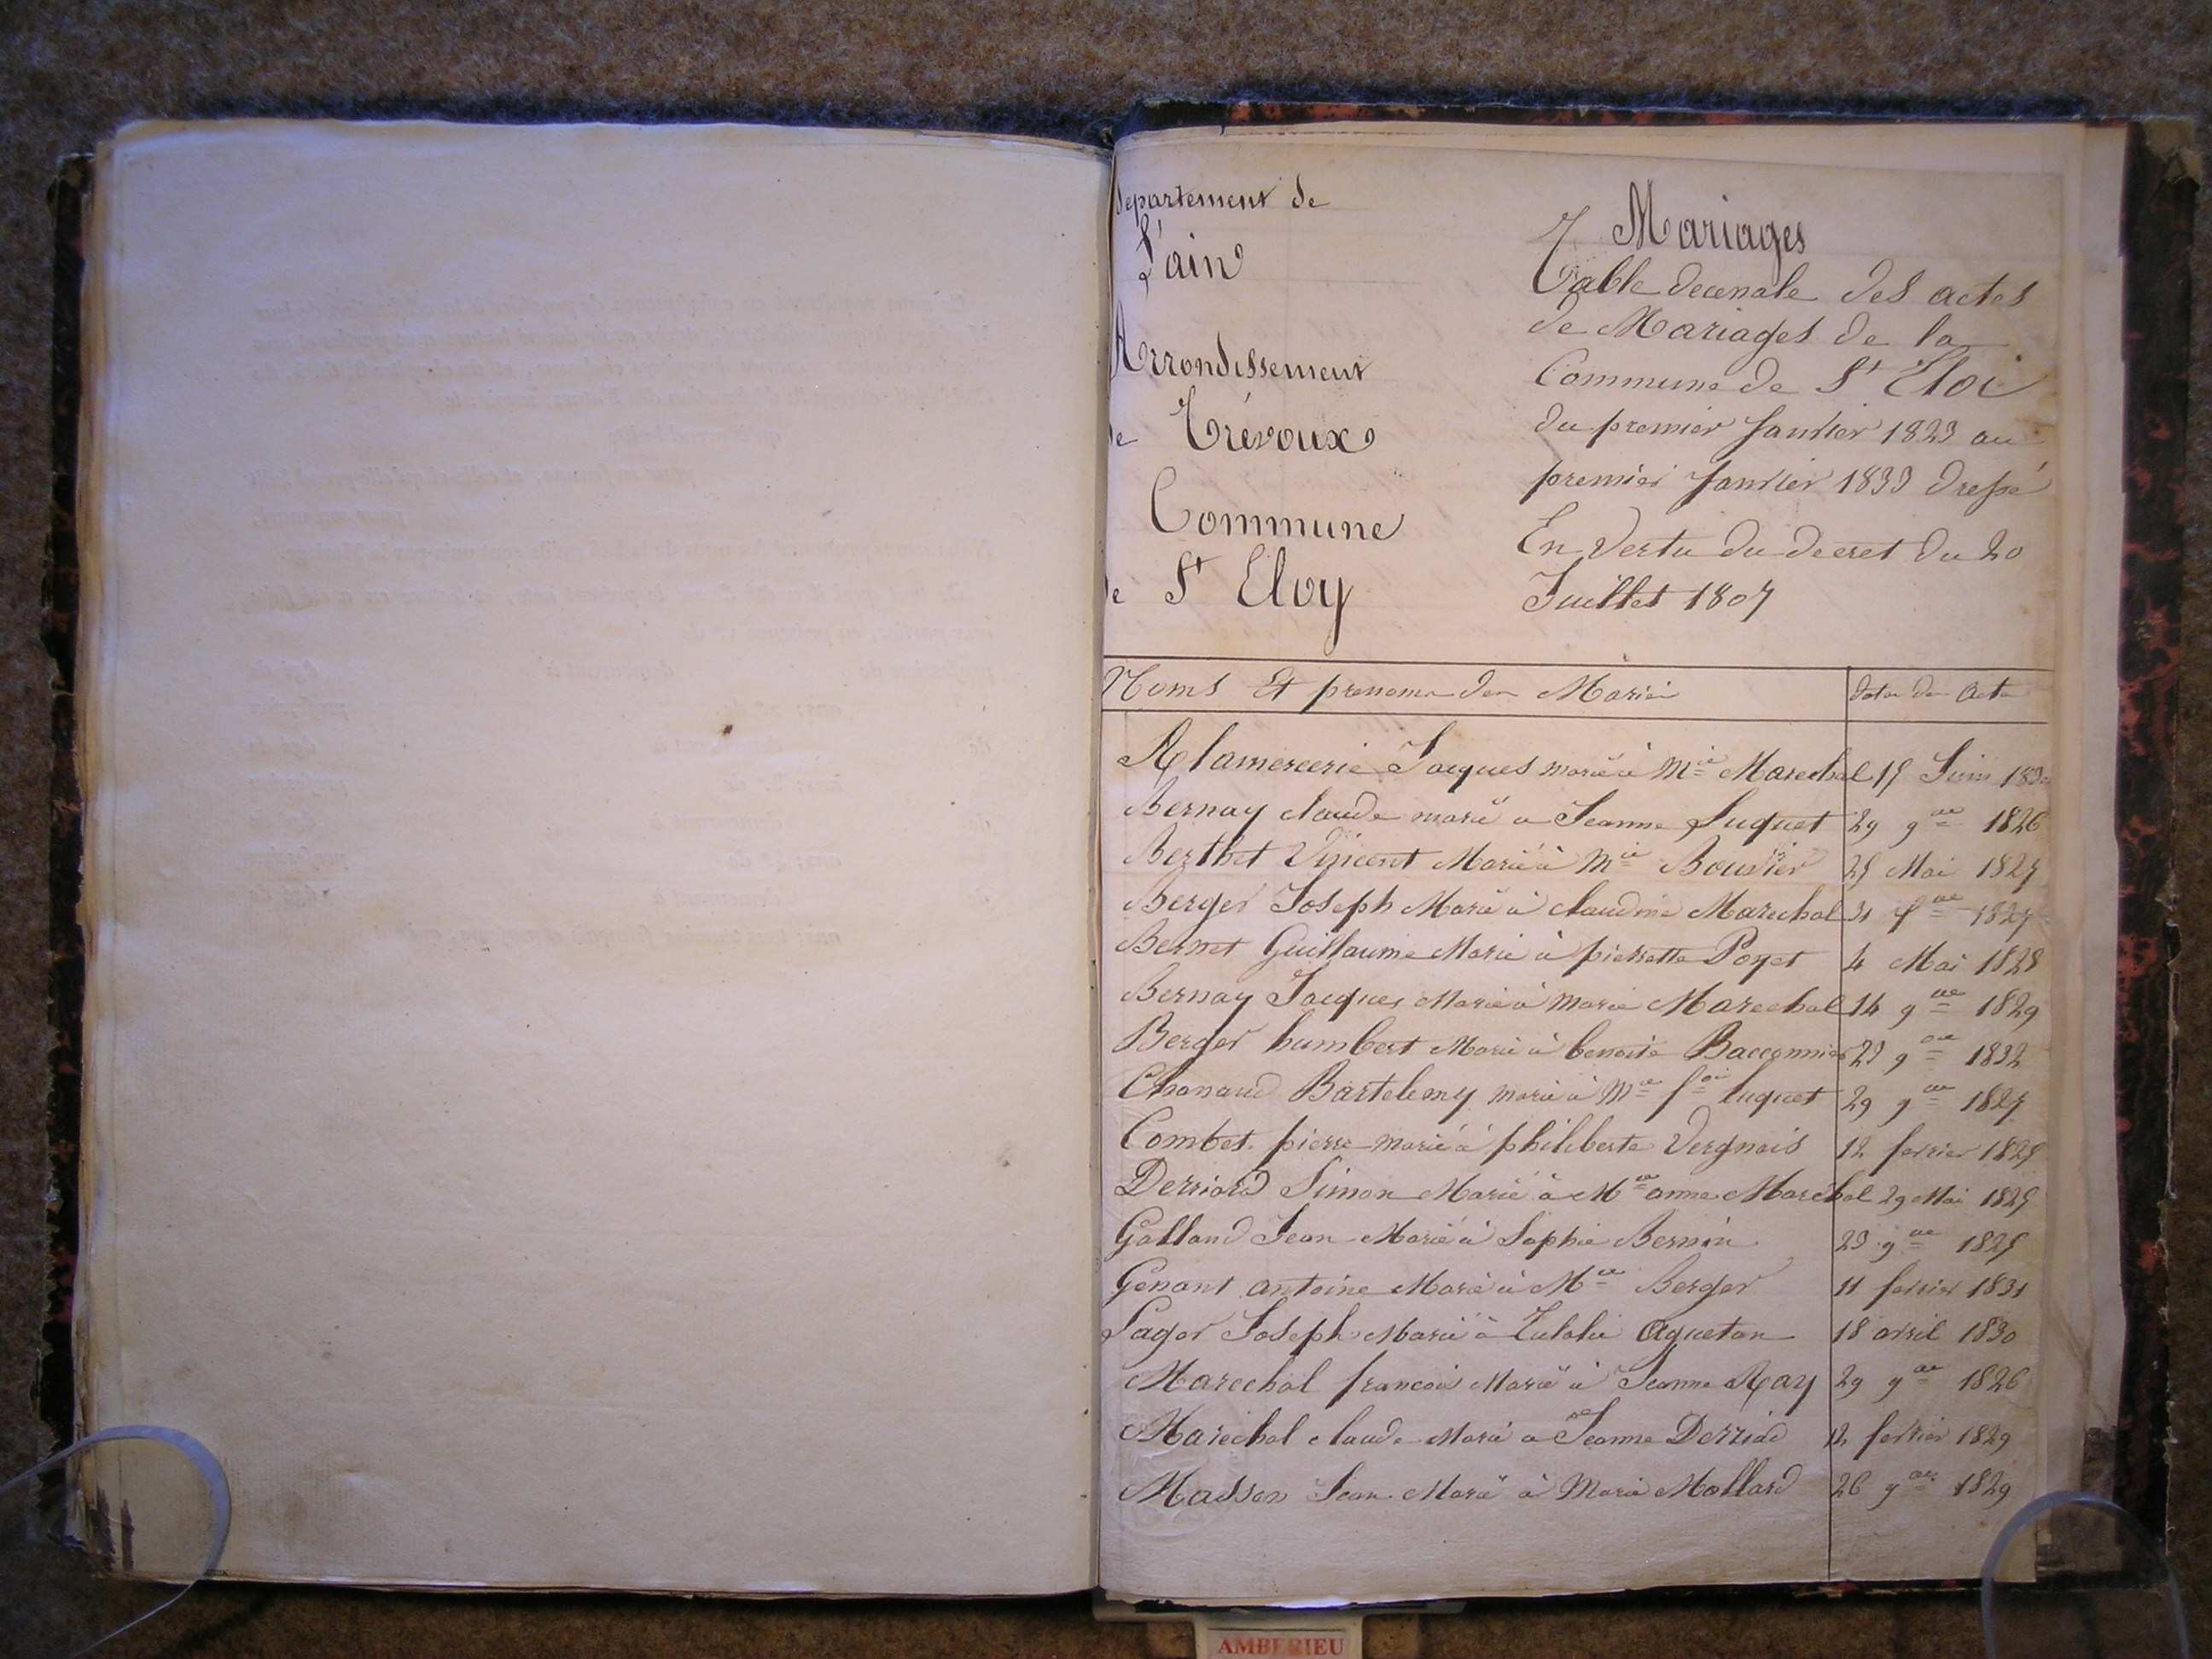 departement de
L'ain
Arrondissement
de Trévoux
Commune
de St Eloy
Mariages
Table decenale des actes
de Mariages de la
Commune de St Eloi
du premier Janvier 1823 au
premier Janvier 1833 dressé
En Vertu du decret du 20
Juillet 1807
Noms Et prenoms des Mariés dates des Actes
Alamercerie Jacques marié à Mie Marechal 15 Juin
Bernay claude marié a Jeanne Luquet 29 9bre 1826
Berthet Vincent Marié à Mie Bouvier 25 Mai 1827
Berger Joseph Marié à claudine Marechal 1827
Bernet Guillaume Marié à pierrette Poyet 4 Mai 1828
Bernay Jacques Marié à Marie Marechal 14 9bre 1829
Berger humbert Marié à benoite Bacconnier 23 9bre 1832
Chanaud Bartelemy marié à Mie luquet 29 9bre 1827
Combet pierre marié à philiberte Vergnais 12 fevrier 1825
Derriard Simon Marié à Mie anne Maréchal 29 Mai 1825
Galland Jean Marié à Sophie Bernin 23 9bre 1825
Genant antoine Marié à Mie Berger 11 fevrier 1831
Lager Joseph Marié à Eulalie Aguetan 18 avril 1830
Marechal francois Marié à Jeanne Ray 29 9bre 1826
Marechal claude Marié a Jeanne Derriad 12 fevrier 1829
Masson Jean Marié à Marie Mollard 26 9bre 1829
AMBERIEU